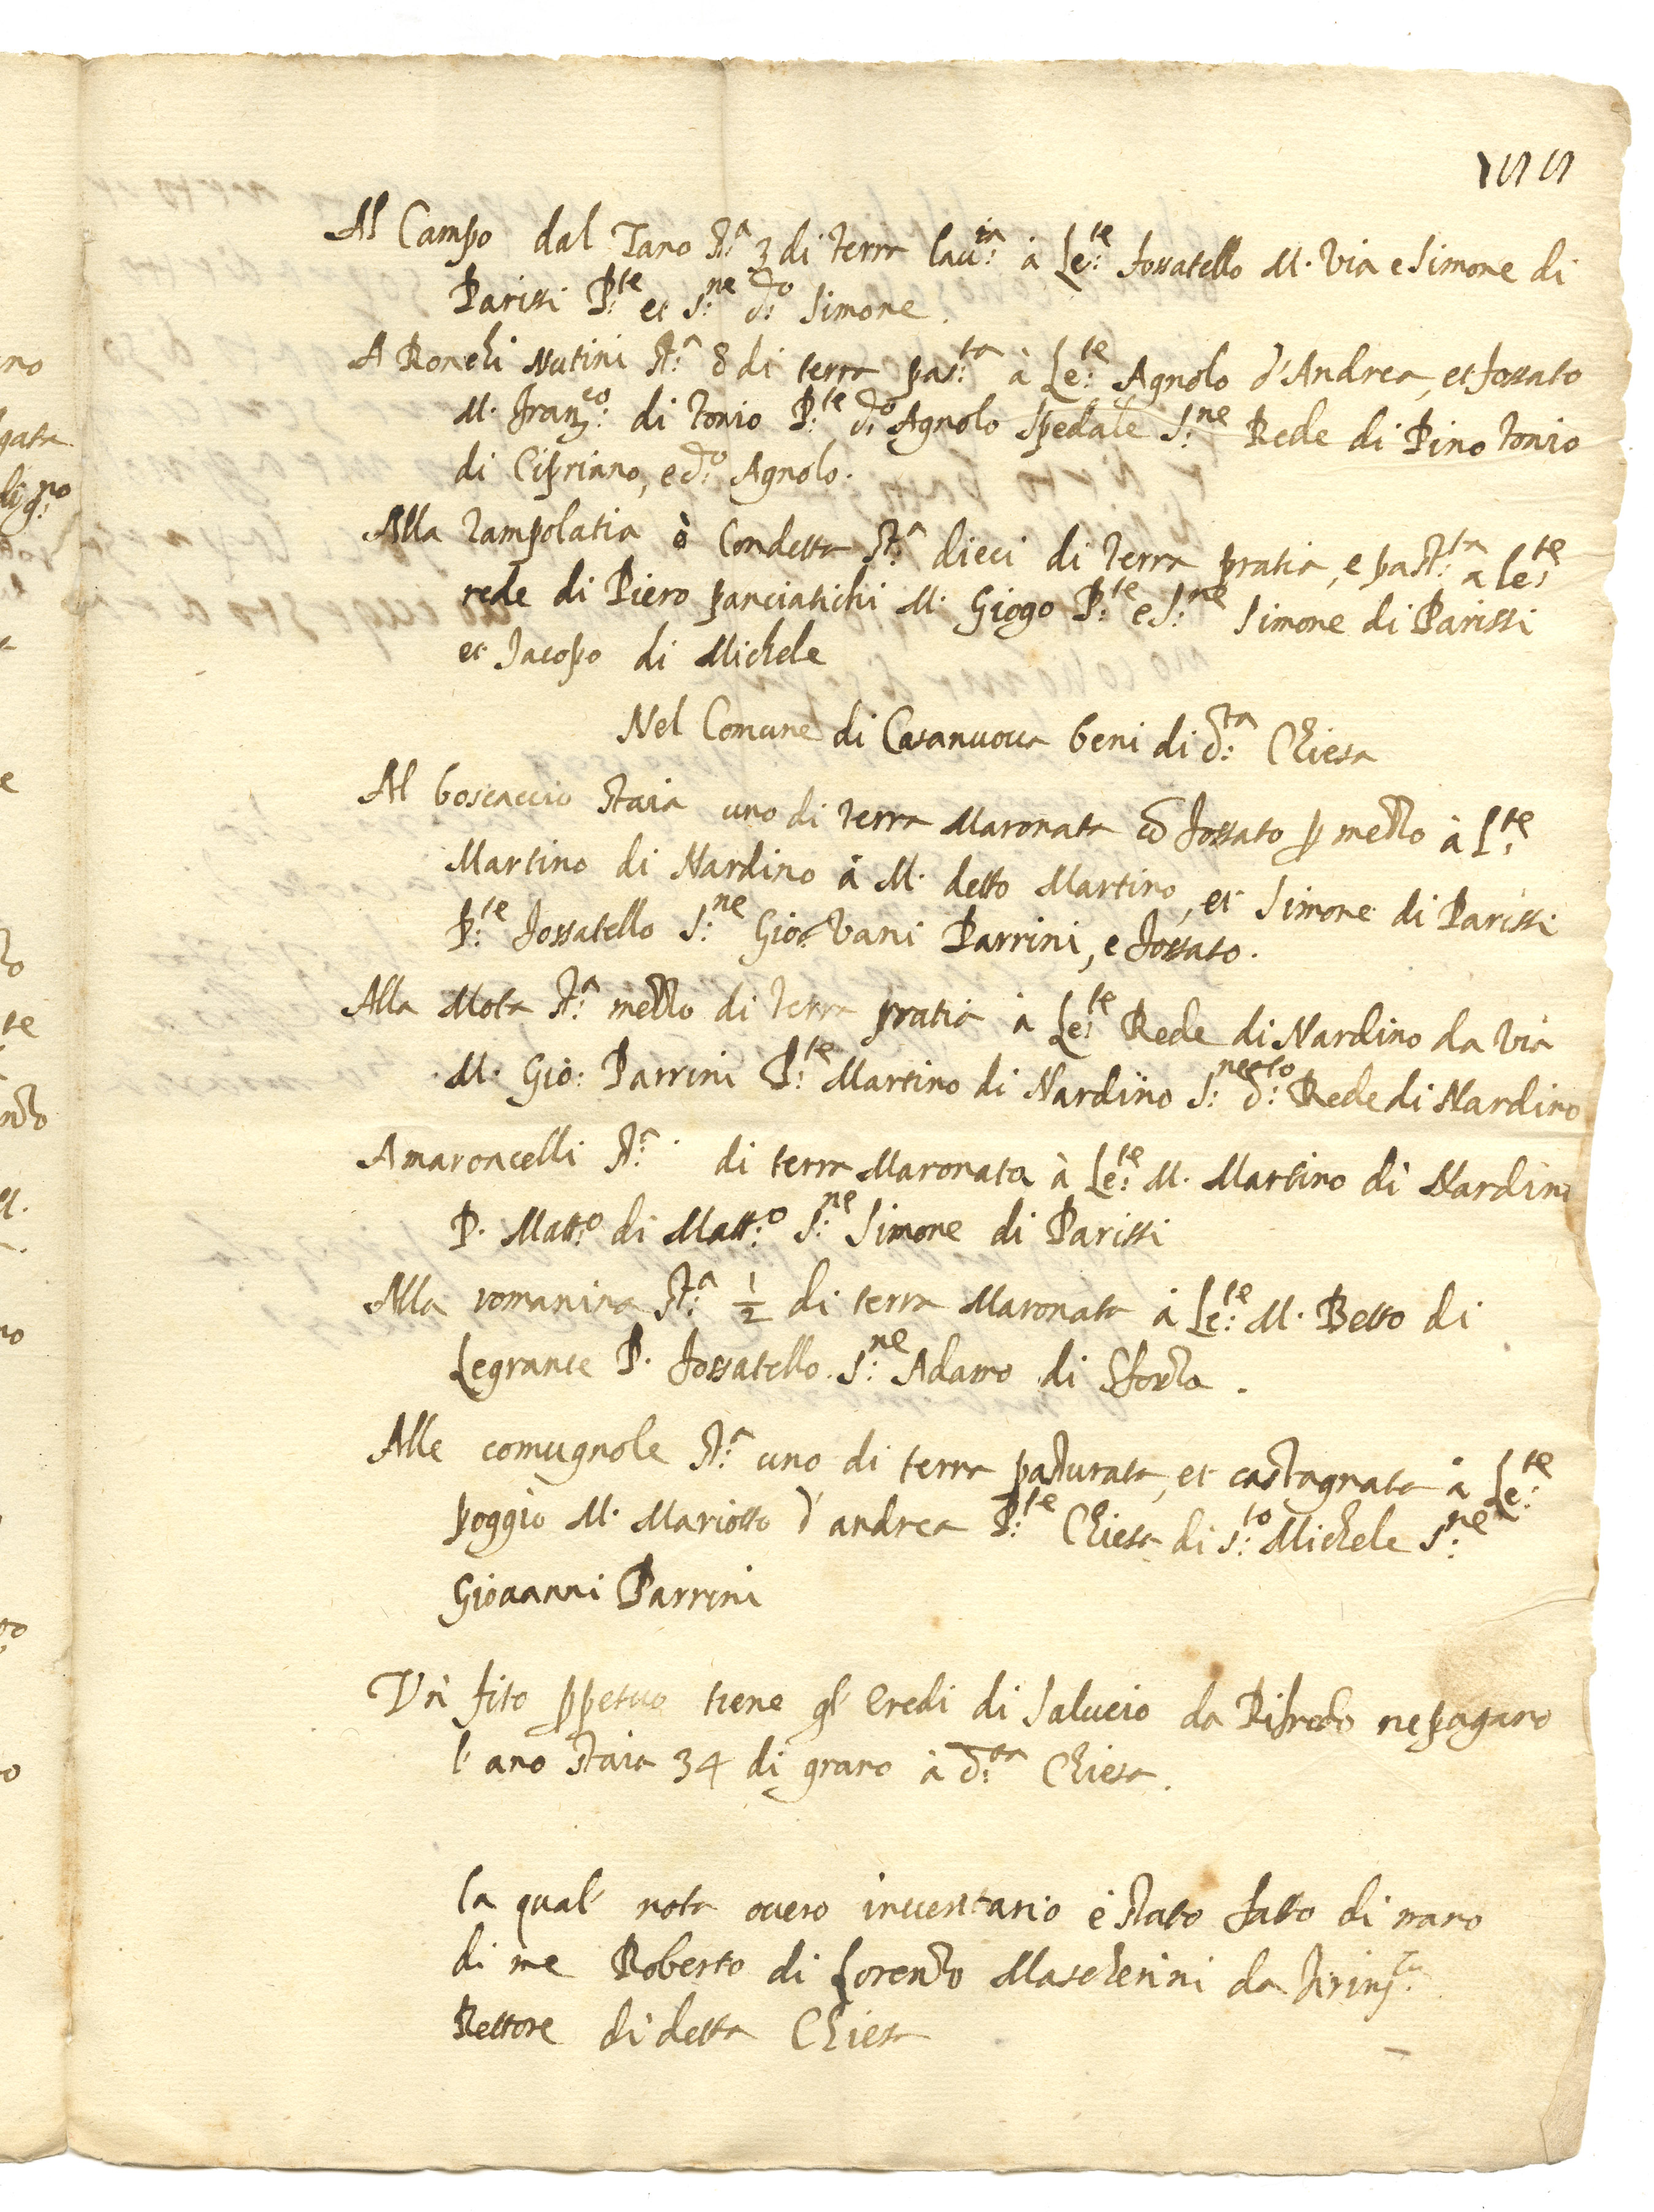 Al Campo dal Tano St:ª 3 di terra lau:ia à Le:te fossatello M. Via e Simone di
Parissi P:te et S:ne d:o Simone.
A Ronchi Nutini St:ª 8 di terra pas:ta à Le:te Agnolo d'Andrea, et fossato
M. Franz:co di Tonio P:te d:o Agnolo Spedale S:ne Rede di Pino Tonio
di Cipriano, e d:o Agnolo.
Alla Zampolatia ò Condetta St:ª dieci di terra pratia, e past:ta a Le:te
rede di Piero panciatichi M. Giogo P:te e S:ne Simone di Parissi
et Jacopo di Michele
Nel Comune di Casanuova beni di d:ta Chiesa
Al boscaccio staia uno di terra Maronata cō fossato p mezzo à L:te
Martino di Nardino à M. detto Martino, et Simone di Parissi
P:te fossatello S:ne Giovani Parrini, e fossato.
Alla Mota St:ª mezzo di terra pratia à Le:te Rede di Nardino da Via
M. Gio: Parrini P:te Martino di Nardino S:ne d:to Rede di Nardino
Amaroncelli St:ª di terra Maronata à Le:te M. Martino di Nardino
P. Matt:o di Matt:o S:ne Simone di Parissi
Alla romanina St:ª 1/2 di terra Maronata à Le:te M. Betto di
Legrante P. fossatello. S:ne Adamo di Sforzo.
Alle comugnole St:ª uno di terra pasturata, et castagnata à Le:te
poggio M. Mariotto d'andrea P:te Chiesa di S:to Michele S:ne
Giovanni Parrini
Un fito ppetuo tiene gl' Eredi di Salucio da Rifredo ne pagano
l'ano staia 34 di grano à d:ta Chiesa.
la qual' nota overo inventario è stato fatto di mano
di me Roberto di Lorenzo Mascherini da
Rettore di detta Chiesa